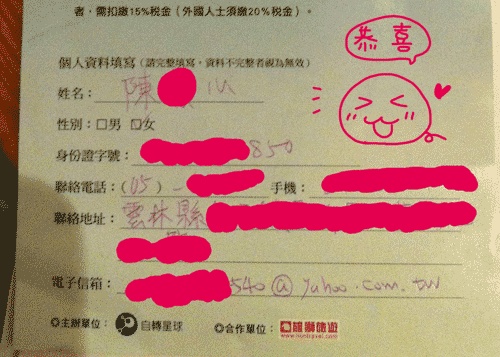 者，需扣繳15%稅金（外國人士須繳20%稅金）。
恭喜
個人資料填寫（請完整填寫，資料不完整者視為無效）
姓名：陳 心
性別：□男 ☑女
身份證字號： 850
聯絡電話：(05) - 手機：
聯絡地址：雲林縣
電子信箱： 540@yahoo.com.tw
◎主辦單位： 自轉星球 ◎合作單位： 雄獅旅遊
www.liontravel.com